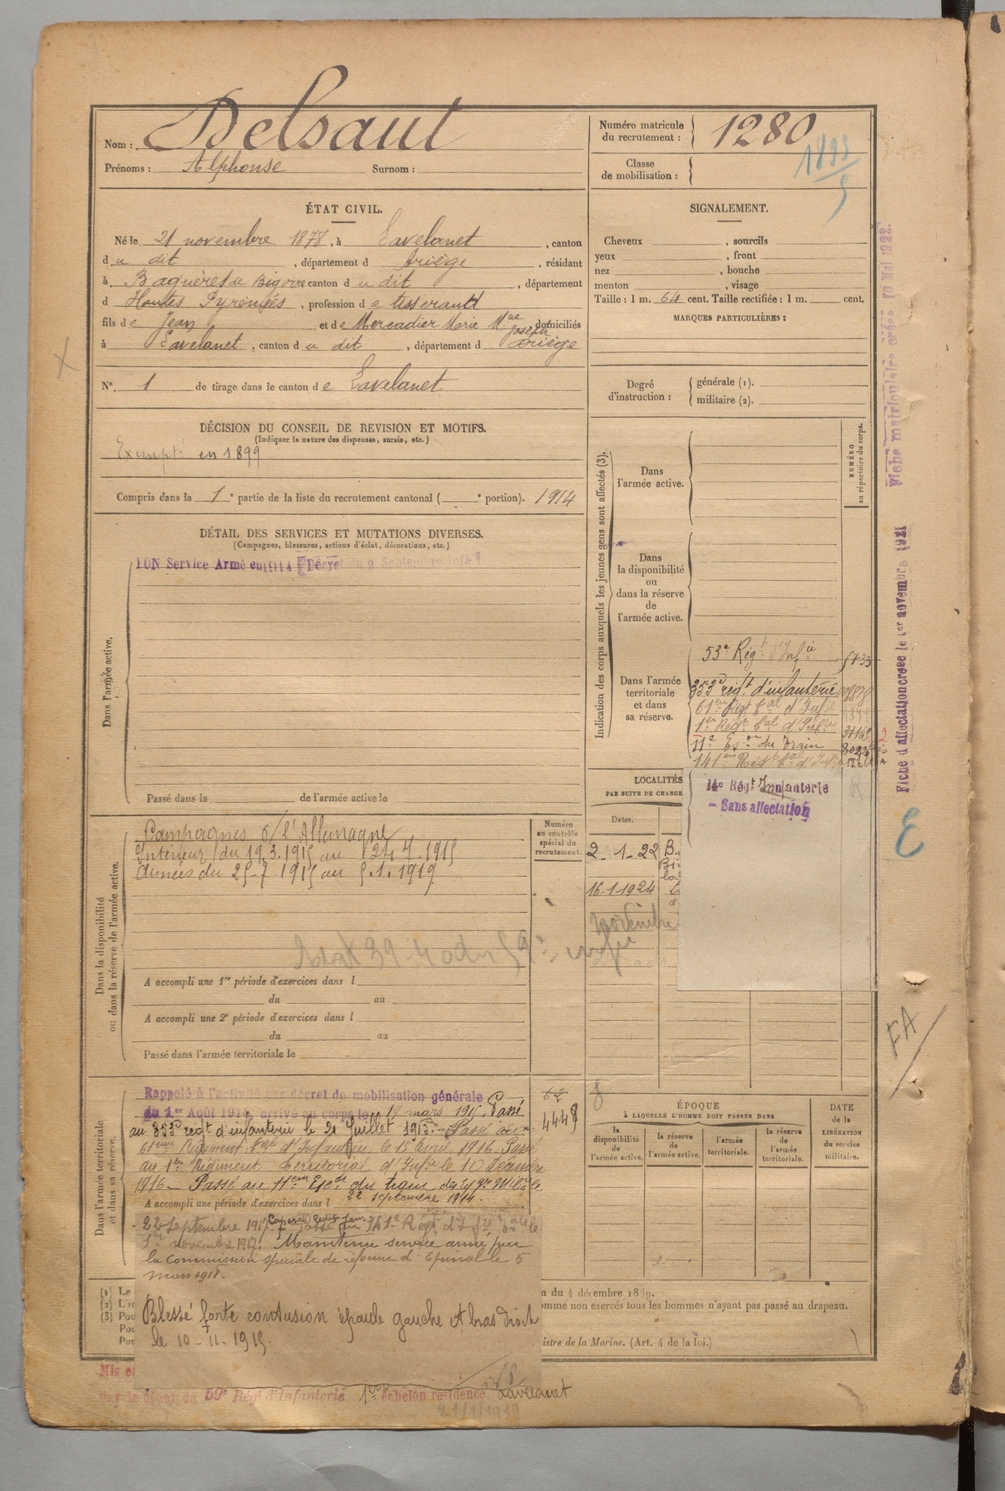 Nom : Delsaut
Prénoms : Alphonse Surnom :
Numéro matricule du recrutement : 1280
Classe de mobilisation : 1893
ÉTAT CIVIL.
Né le 21 novembre 1878, à Lavelanet, canton
du dit, département d Ariège, résidant
à Bagnères de Bigorre canton du dit, département
d Hautes Pyrénées, profession de tisserand
fils de Jean et de Mercadier Marie Mne Joseph domiciliés
à Lavelanet, canton du dit, département d Ariège
N° 1 de tirage dans le canton de Lavelanet
SIGNALEMENT.
Cheveux , sourcils
yeux , front
nez , bouche
menton , visage
Taille : 1 m. 64 cent. Taille rectifiée : 1 m. cent.
MARQUES PARTICULIÈRES :
Degré d'instruction : générale (1).
militaire (2).
DÉCISION DU CONSEIL DE REVISION ET MOTIFS.
(Indiquer la nature des dispenses, sursis, etc.)
Exempté en 1899
Compris dans la 1e partie de la liste du recrutement cantonal ( e portion). 1914
DÉTAIL DES SERVICES ET MUTATIONS DIVERSES.
(Campagnes, blessures, actions d'éclat, décorations, etc.)
Dans l'armée active.
BON Service Armé en 1914 (Décret du 9 Septembre 1914)
Passé dans la de l'armée active le
Indication des corps auxquels les jeunes gens sont affectés (3).
NUMÉRO au répertoire du corps.
Dans l'armée active.
Dans la disponibilité ou dans la réserve de l'armée active.
Dans l'armée territoriale et dans sa réserve.
53e Régt d'Infie
353e régt d'infanterie
61em Régt tal d'Infie
1er Régt tal d'Infie
11e Eson du Train
141em Régt
14e Régt Infanterie
- Sans affectation
Dans la disponibilité ou dans la réserve de l'armée active.
Campagnes c/ l'Allemagne
Intérieur du 19.3.1915 au 24.7.1915
Armées du 25-7-1915 au 5.1.1919
Numéro au contrôle spécial du recrutement.
A accompli une 1re période d'exercices dans l
du au
A accompli une 2e période d'exercices dans l
du au
Passé dans l'armée territoriale le
LOCALITÉS
PAR SUITE DE CHANGE
Dates.
2-1-22
16-1-1924
novembre
Dans l'armée territoriale et dans sa réserve.
Rappelé à l'activité par décret de mobilisation générale
du 1er Août 1914, arrivé au corps le 17 mars 1915. Passé
au 353e régt d'infanterie le 21 Juillet 1915. Passé au
61eme Régiment tal d'Infanterie le 15 Avril 1916. Passé
au 1er Régiment territorial d'Infie le 10 Décembre
1916. Passé au 11eme Escon du train
22 septembre 1914.
A accompli une période d'exercices dans l
4448
22 septembre 1917. Passé au 141e Régt d'Infie tale le
1er novembre 1917. Maintenu service armé par
la commission spéciale de réforme d'Epinal le 5
mars 1918.
Blessé forte contusion épaule gauche et bras droit
le 10-11-1915.
ÉPOQUE
À LAQUELLE L'HOMME DOIT PASSER DANS
la disponibilité de l'armée active.
la réserve de l'armée active.
l'armée territoriale.
la réserve de l'armée territoriale.
DATE de la LIBÉRATION du service militaire.
(1) Le
(2) L'in
(3) Pou
Pou
Pou
n du 4 décembre 1889.
omme non exercés tous les hommes n'ayant pas passé au drapeau.
istre de la Marine. (Art. 4 de la loi.)
Mis en
Par le dépôt du 59e Régt d'Infanterie 1er échelon résidence Lavelanet
21/1/1919
Fiche matriculaire créée 10 Mai 1922.
Fiche d'affectation créée le 1er novembre 1921
E
FA